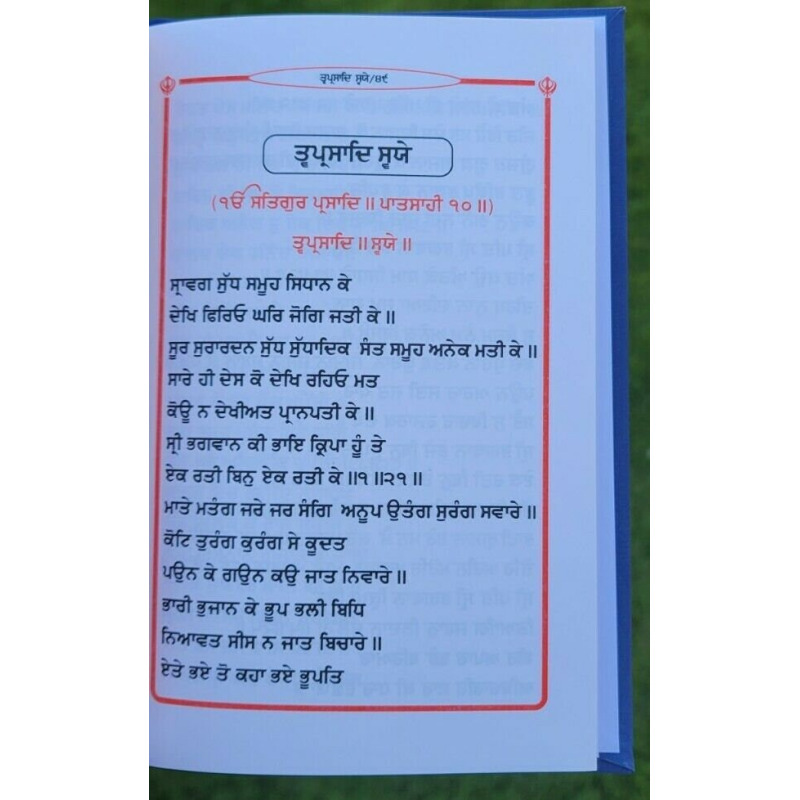 ਤ੍ਵਪ੍ਰਸਾਦਿ ਸ੍ਵਯੇ/੪੯
ਤ੍ਵਪ੍ਰਸਾਦਿ ਸ੍ਵਯੇ
(੧ਓ ਸਤਿਗੁਰ ਪ੍ਰਸਾਦਿ ॥ ਪਾਤਸਾਹੀ ੧੦ ॥)
ਤ੍ਵਪ੍ਰਸਾਦਿ ॥ ਸ੍ਵਯੇ ॥
ਸ੍ਰਾਵਗ ਸੁੱਧ ਸਮੂਹ ਸਿਧਾਨ ਕੇ
ਦੇਖਿ ਫਿਰਿਓ ਘਰਿ ਜੋਗਿ ਜਤੀ ਕੇ ॥
ਸੂਰ ਸੁਰਾਰਦਨ ਸੁੱਧ ਸੁੱਧਾਦਿਕ ਸੰਤ ਸਮੂਹ ਅਨੇਕ ਮਤੀ ਕੇ ॥
ਸਾਰੇ ਹੀ ਦੇਸ ਕੋ ਦੇਖਿ ਰਹਿਓ ਮਤ
ਕੋਊ ਨ ਦੇਖੀਅਤ ਪ੍ਰਾਨਪਤੀ ਕੇ ॥
ਸ੍ਰੀ ਭਗਵਾਨ ਕੀ ਭਾਇ ਕ੍ਰਿਪਾ ਹੂੰ ਤੇ
ਏਕ ਰਤੀ ਬਿਨੁ ਏਕ ਰਤੀ ਕੇ ॥੧॥੨੧॥
ਮਾਤੇ ਮਤੰਗ ਜਰੇ ਜਰ ਸੰਗਿ ਅਨੂਪ ਉਤੰਗ ਸੁਰੰਗ ਸਵਾਰੇ ॥
ਕੋਟਿ ਤੁਰੰਗ ਕੁਰੰਗ ਸੇ ਕੂਦਤ
ਪਉਨ ਕੇ ਗਉਨ ਕਉ ਜਾਤ ਨਿਵਾਰੇ ॥
ਭਾਰੀ ਭੁਜਾਨ ਕੇ ਭੂਪ ਭਲੀ ਬਿਧਿ
ਨਿਆਵਤ ਸੀਸ ਨ ਜਾਤ ਬਿਚਾਰੇ ॥
ਏਤੇ ਭਏ ਤੋ ਕਹਾ ਭਏ ਭੂਪਤਿ